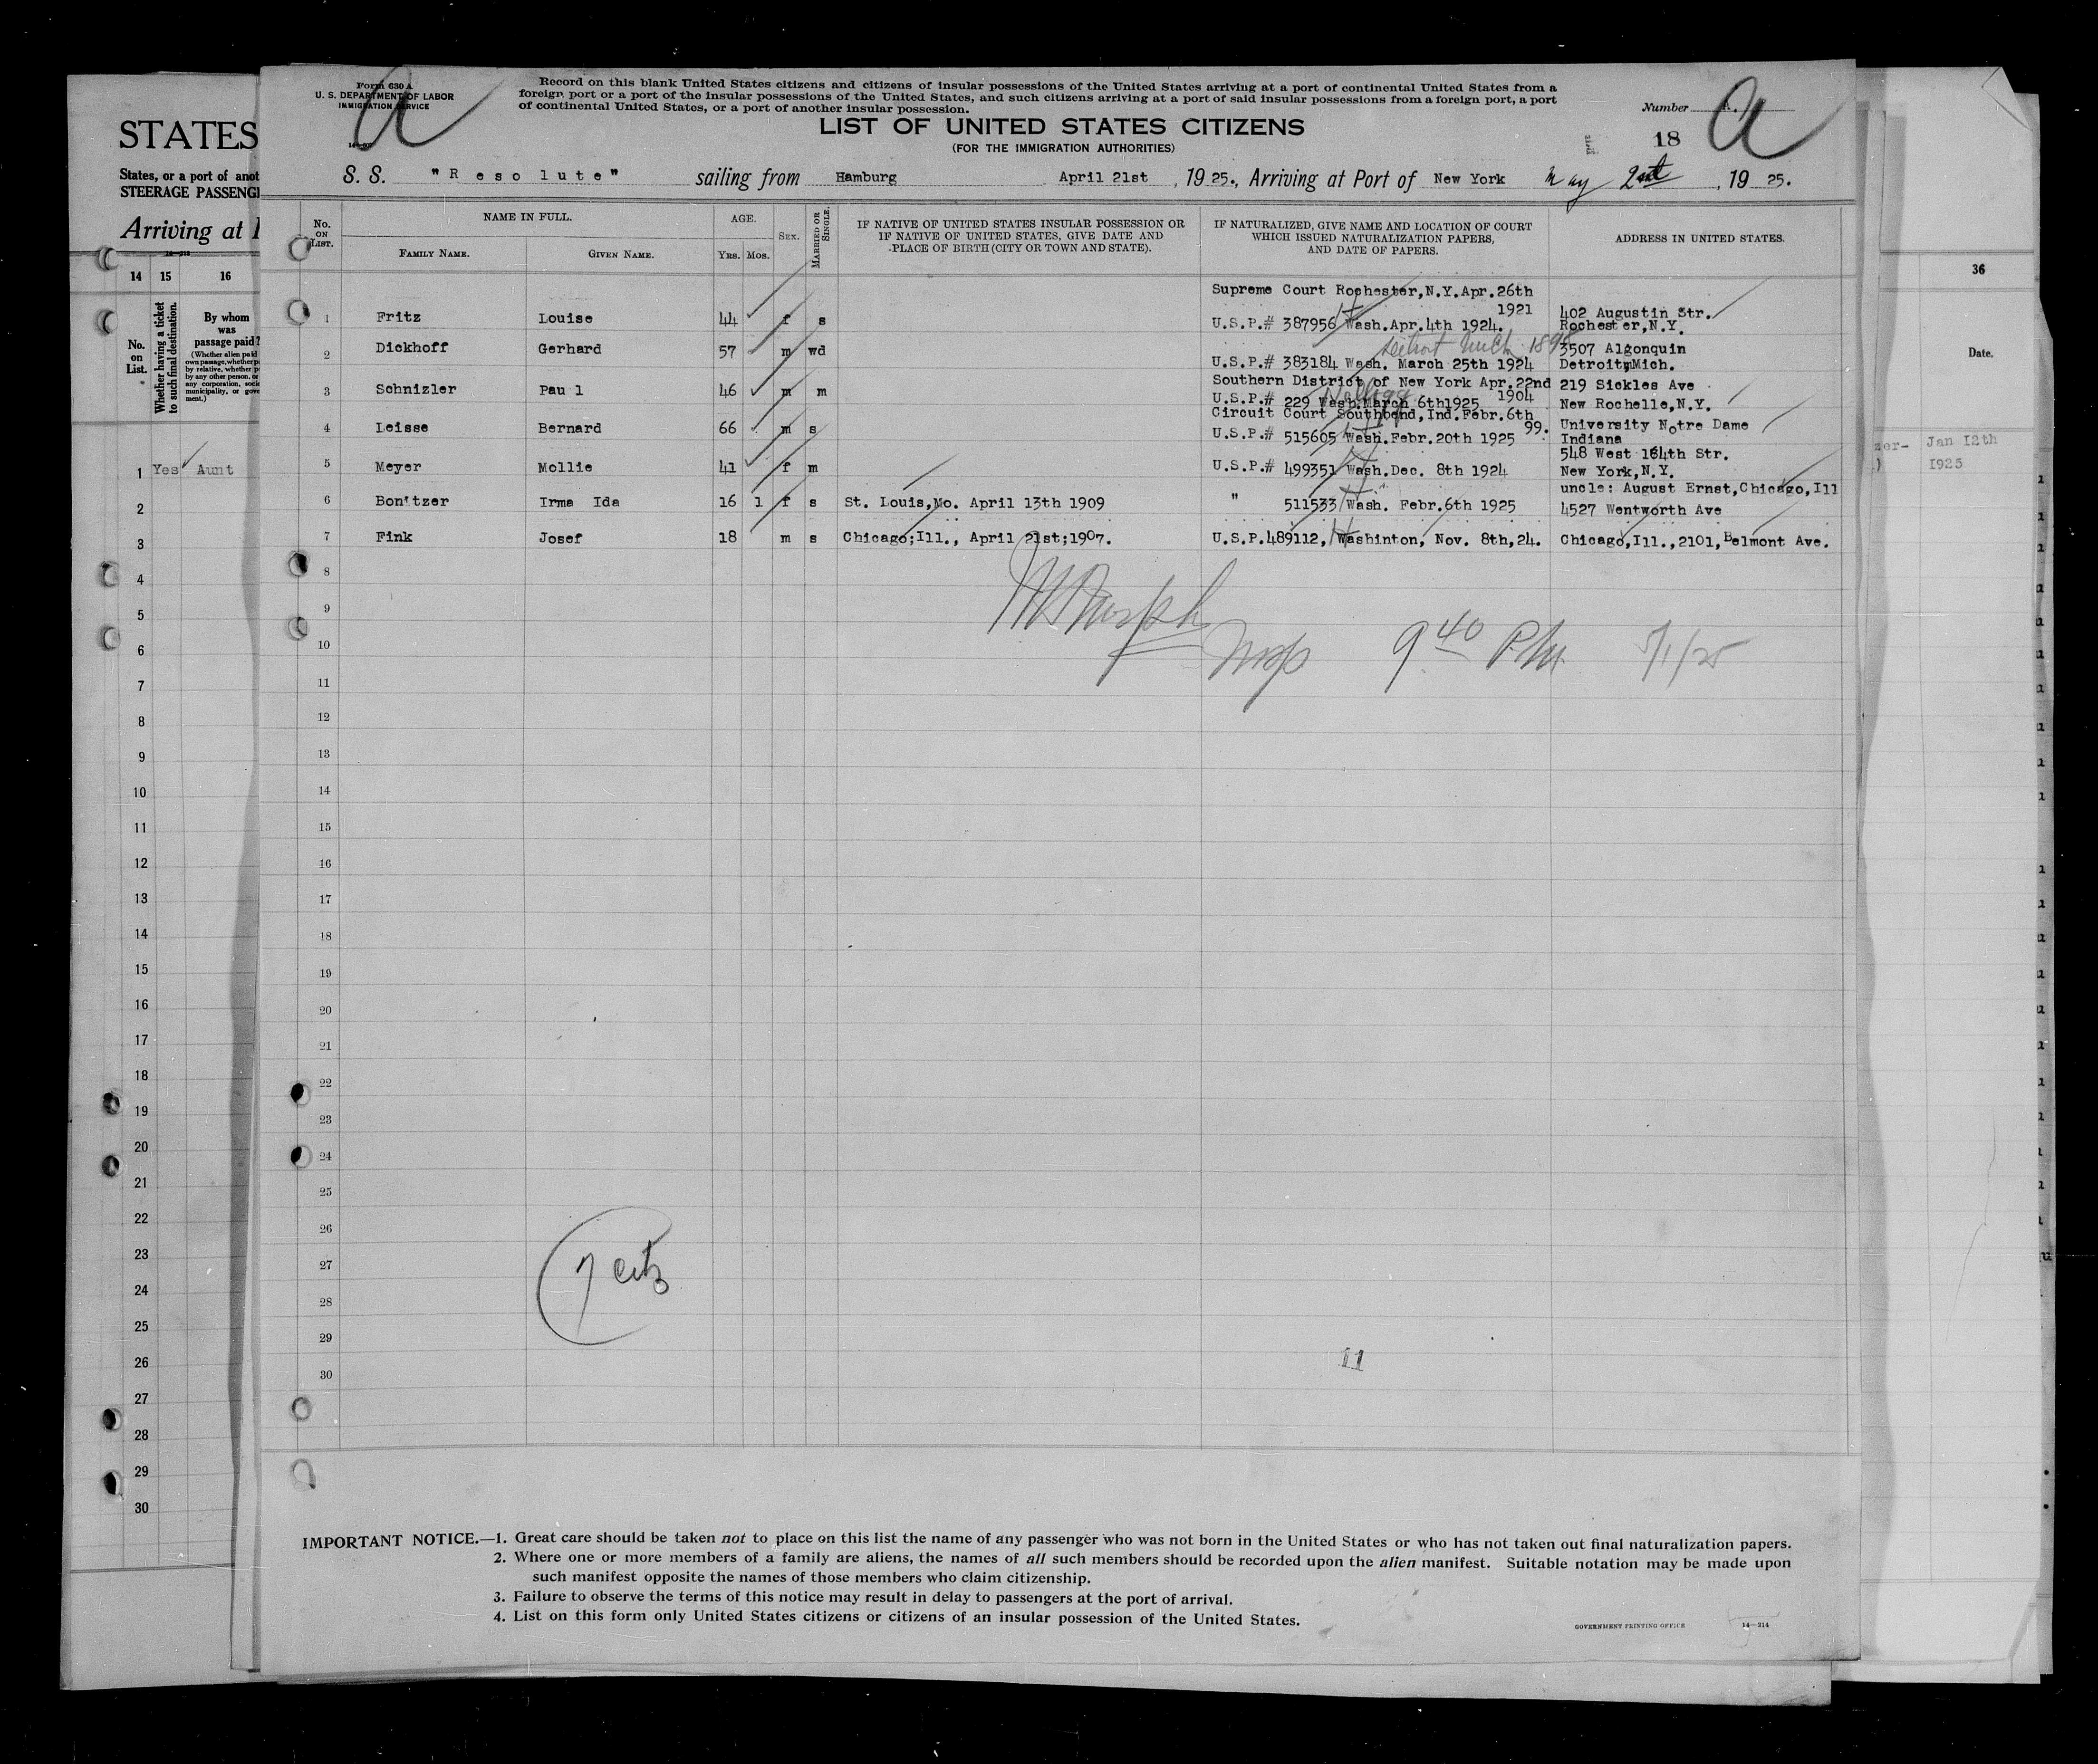 STATES
States, or a port of anot
STEERAGE PASSENG
Arriving at
14 15 16
No. on List.
Whether having a ticket to such final destination.
By whom was passage paid?
(Whether alien paid
own passage, whether p
by relative, whether p
by any other person, or
any corporation, socie
municipality, or gove
ment.)
1 Yes Aunt
2
3
4
5
6
7
8
9
10
11
12
13
14
15
16
17
18
19
20
21
22
23
24
25
26
27
28
29
30
Form 630 A
U. S. DEPARTMENT OF LABOR
IMMIGRATION SERVICE
a
Record on this blank United States citizens and citizens of insular possessions of the United States arriving at a port of continental United States from a
foreign port or a port of the insular possessions of the United States, and such citizens arriving at a port of said insular possessions from a foreign port, a port
of continental United States, or a port of another insular possession.
LIST OF UNITED STATES CITIZENS
(FOR THE IMMIGRATION AUTHORITIES)
Number
18
a
S. S. "R e s o l u t e" sailing from Hamburg April 21st , 19 25., Arriving at Port of New York May 2nd , 19 25.
No. ON LIST.
NAME IN FULL.
FAMILY NAME. GIVEN NAME.
AGE.
YRS. MOS.
SEX.
MARRIED OR SINGLE.
IF NATIVE OF UNITED STATES INSULAR POSSESSION OR
IF NATIVE OF UNITED STATES, GIVE DATE AND
PLACE OF BIRTH (CITY OR TOWN AND STATE).
IF NATURALIZED, GIVE NAME AND LOCATION OF COURT
WHICH ISSUED NATURALIZATION PAPERS,
AND DATE OF PAPERS.
ADDRESS IN UNITED STATES.
Supreme Court Rochester,N.Y.Apr.26th
1921
1 Fritz Louise 44 f s U.S.P.# 387956 Wash.Apr.4th 1924. 402 Augustin Str.
Rochester,N.Y.
Detroit Mich 1898
2 Dickhoff Gerhard 57 m wd U.S.P.# 383184 Wash. March 25th 1924 3507 Algonquin
Detroit,Mich.
Southern District of New York Apr.22nd
1904
3 Schnizler Pau l 46 m m U.S.P.# 229 Wash.March 6th1925 219 Sickles Ave
New Rochelle,N.Y.
Circuit Court Southbend,Ind.Febr.6th
99.
4 Leisse Bernard 66 m s U.S.P.# 515605 Wash.Febr.20th 1925 University Notre Dame
Indiana
5 Meyer Mollie 41 f m U.S.P.# 499351 Wash.Dec. 8th 1924 548 West 164th Str.
New York,N.Y.
6 Bonitzer Irma Ida 16 1 f s St. Louis,Mo. April 13th 1909 " 511533 Wash. Febr.6th 1925 uncle: August Ernst,Chicago,Ill
4527 Wentworth Ave
7 Fink Josef 18 m s Chicago;Ill., April 21st;1907. U.S.P.489112, Washinton, Nov. 8th,24. Chicago,Ill.,2101,Belmont Ave.
8
9
10
11
12
13
14
15
16
17
18
19
20
21
22
23
24
25
26
27
28
29
30
Insp 9 40 P.M. 5/1/25
7 Citz
11
IMPORTANT NOTICE.—1. Great care should be taken not to place on this list the name of any passenger who was not born in the United States or who has not taken out final naturalization papers.
2. Where one or more members of a family are aliens, the names of all such members should be recorded upon the alien manifest. Suitable notation may be made upon
such manifest opposite the names of those members who claim citizenship.
3. Failure to observe the terms of this notice may result in delay to passengers at the port of arrival.
4. List on this form only United States citizens or citizens of an insular possession of the United States.
GOVERNMENT PRINTING OFFICE 14—214
36
Date.
Jan 12th
1925